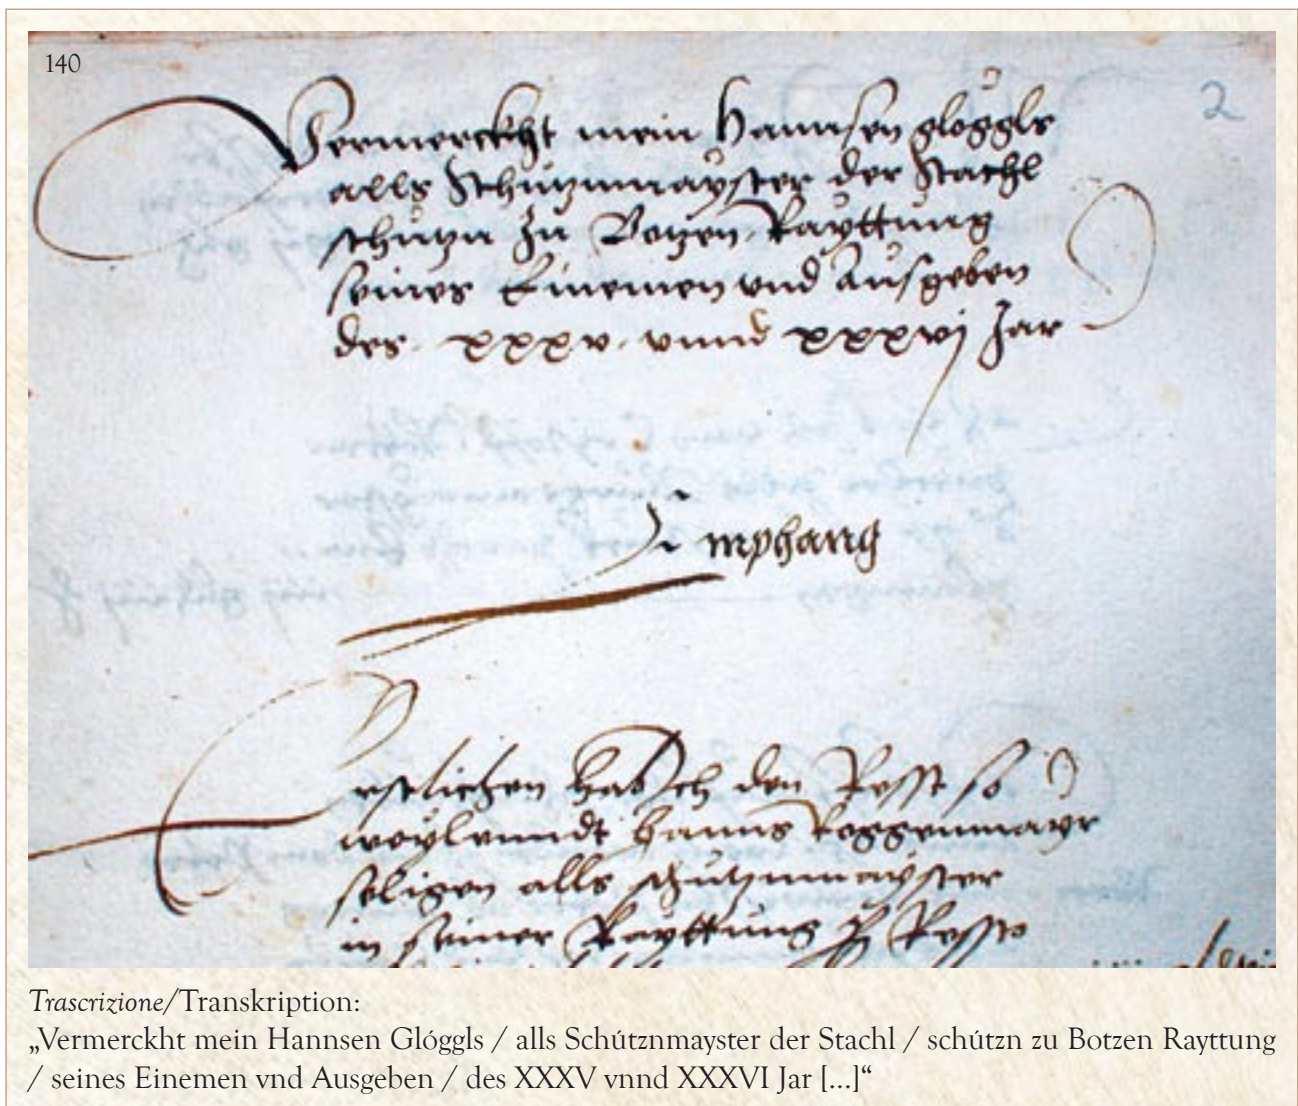 140
2
Vermerckht mein Hannsen glóggls
alls Schútznmayster der Stachl
schútzn zu Botzen Rayttung
seines Einemen vnd Ausgeben
des xxxv vnnd xxxvj Jar
Emphang
Erstlichen hab Ich den Resst so
weylenndt Hanns Roggenmayr
seligen alls schútznmayster
in seiner Rayttung Resst
Trascrizione/Transkription:
„Vermerckht mein Hannsen Glóggls / alls Schútznmayster der Stachl / schútzn zu Botzen Rayttung
/ seines Einemen vnd Ausgeben / des XXXV vnnd XXXVI Jar [...]“